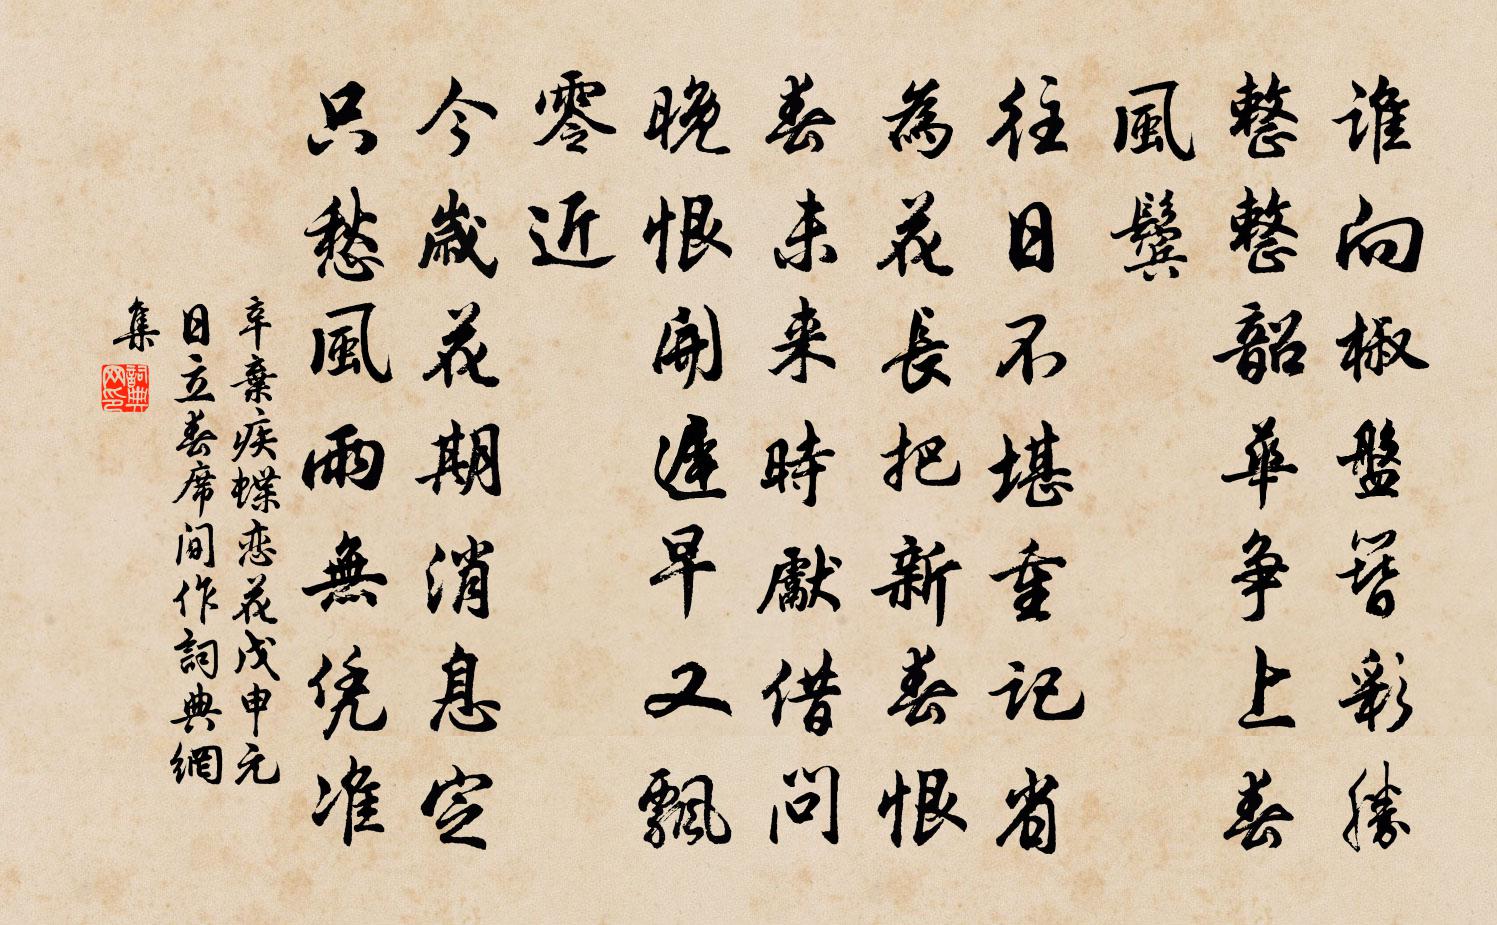 誰向椒盤簪彩勝
整整韶華爭上春
風鬢
往日不堪重記省
為花長把新春恨
春未來時獻借問
晚恨開遲早又飄
零近
今歲花期消息定
只愁風雨無凭准
辛棄疾蝶恋花戊申元
日立春席間作詞典網
集
詞典网印